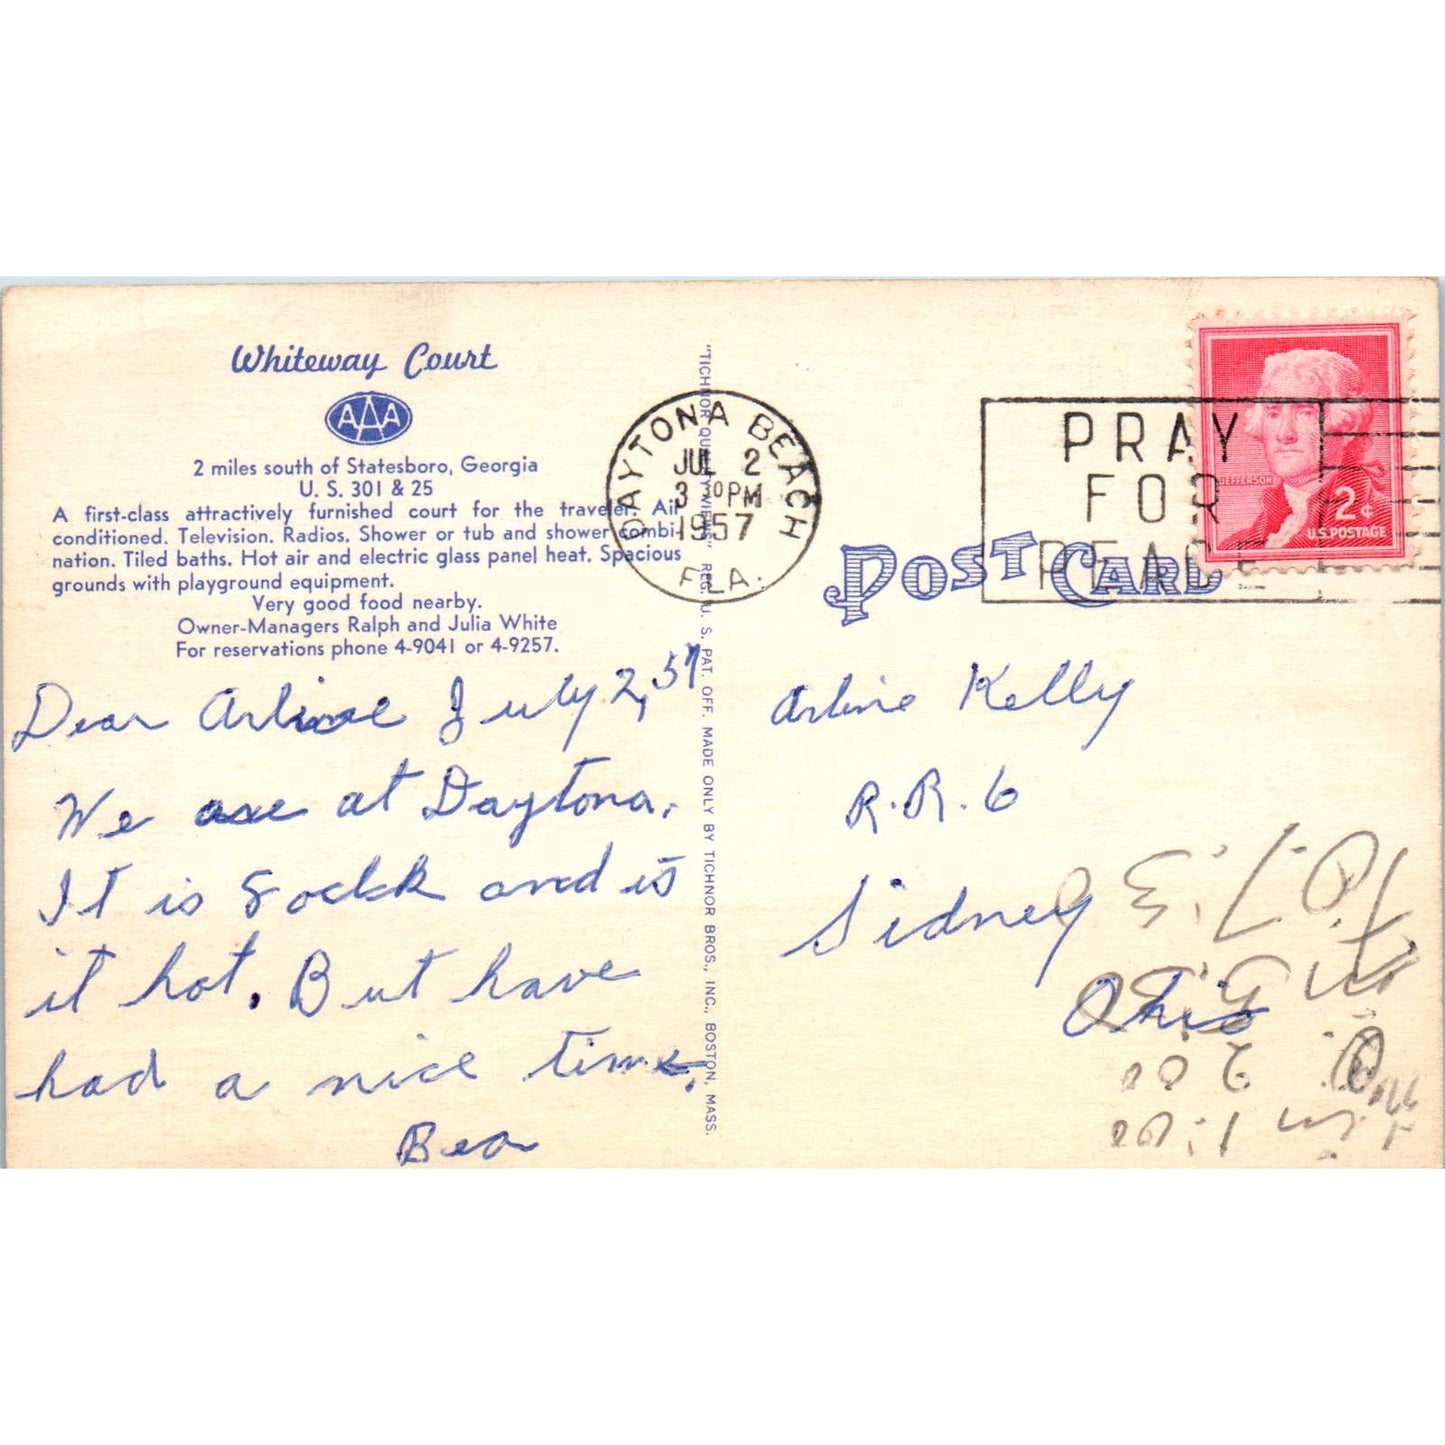 Whiteway Court
AAA
2 miles south of Statesboro, Georgia
U. S. 301 & 25
A first-class attractively furnished court for the traveler. Air
conditioned. Television. Radios. Shower or tub and shower combi-
nation. Tiled baths. Hot air and electric glass panel heat. Spacious
grounds with playground equipment.
Very good food nearby.
Owner-Managers Ralph and Julia White
For reservations phone 4-9041 or 4-9257.
Dear Arline July 2, 57
We are at Daytona.
It is and is
it hot. But have
had a nice time.
Bea
"TICHNOR QUALITY VIEWS" REG. U. S. PAT. OFF. MADE ONLY BY TICHNOR BROS., INC., BOSTON, MASS.
DAYTONA BEACH
JUL 2
3 30 PM
1957
FLA.
PRAY
FOR
PEACE
JEFFERSON
2¢
U.S. POSTAGE
POST CARD
Arline Kelly
R.R. 6
Sidney
Ohio